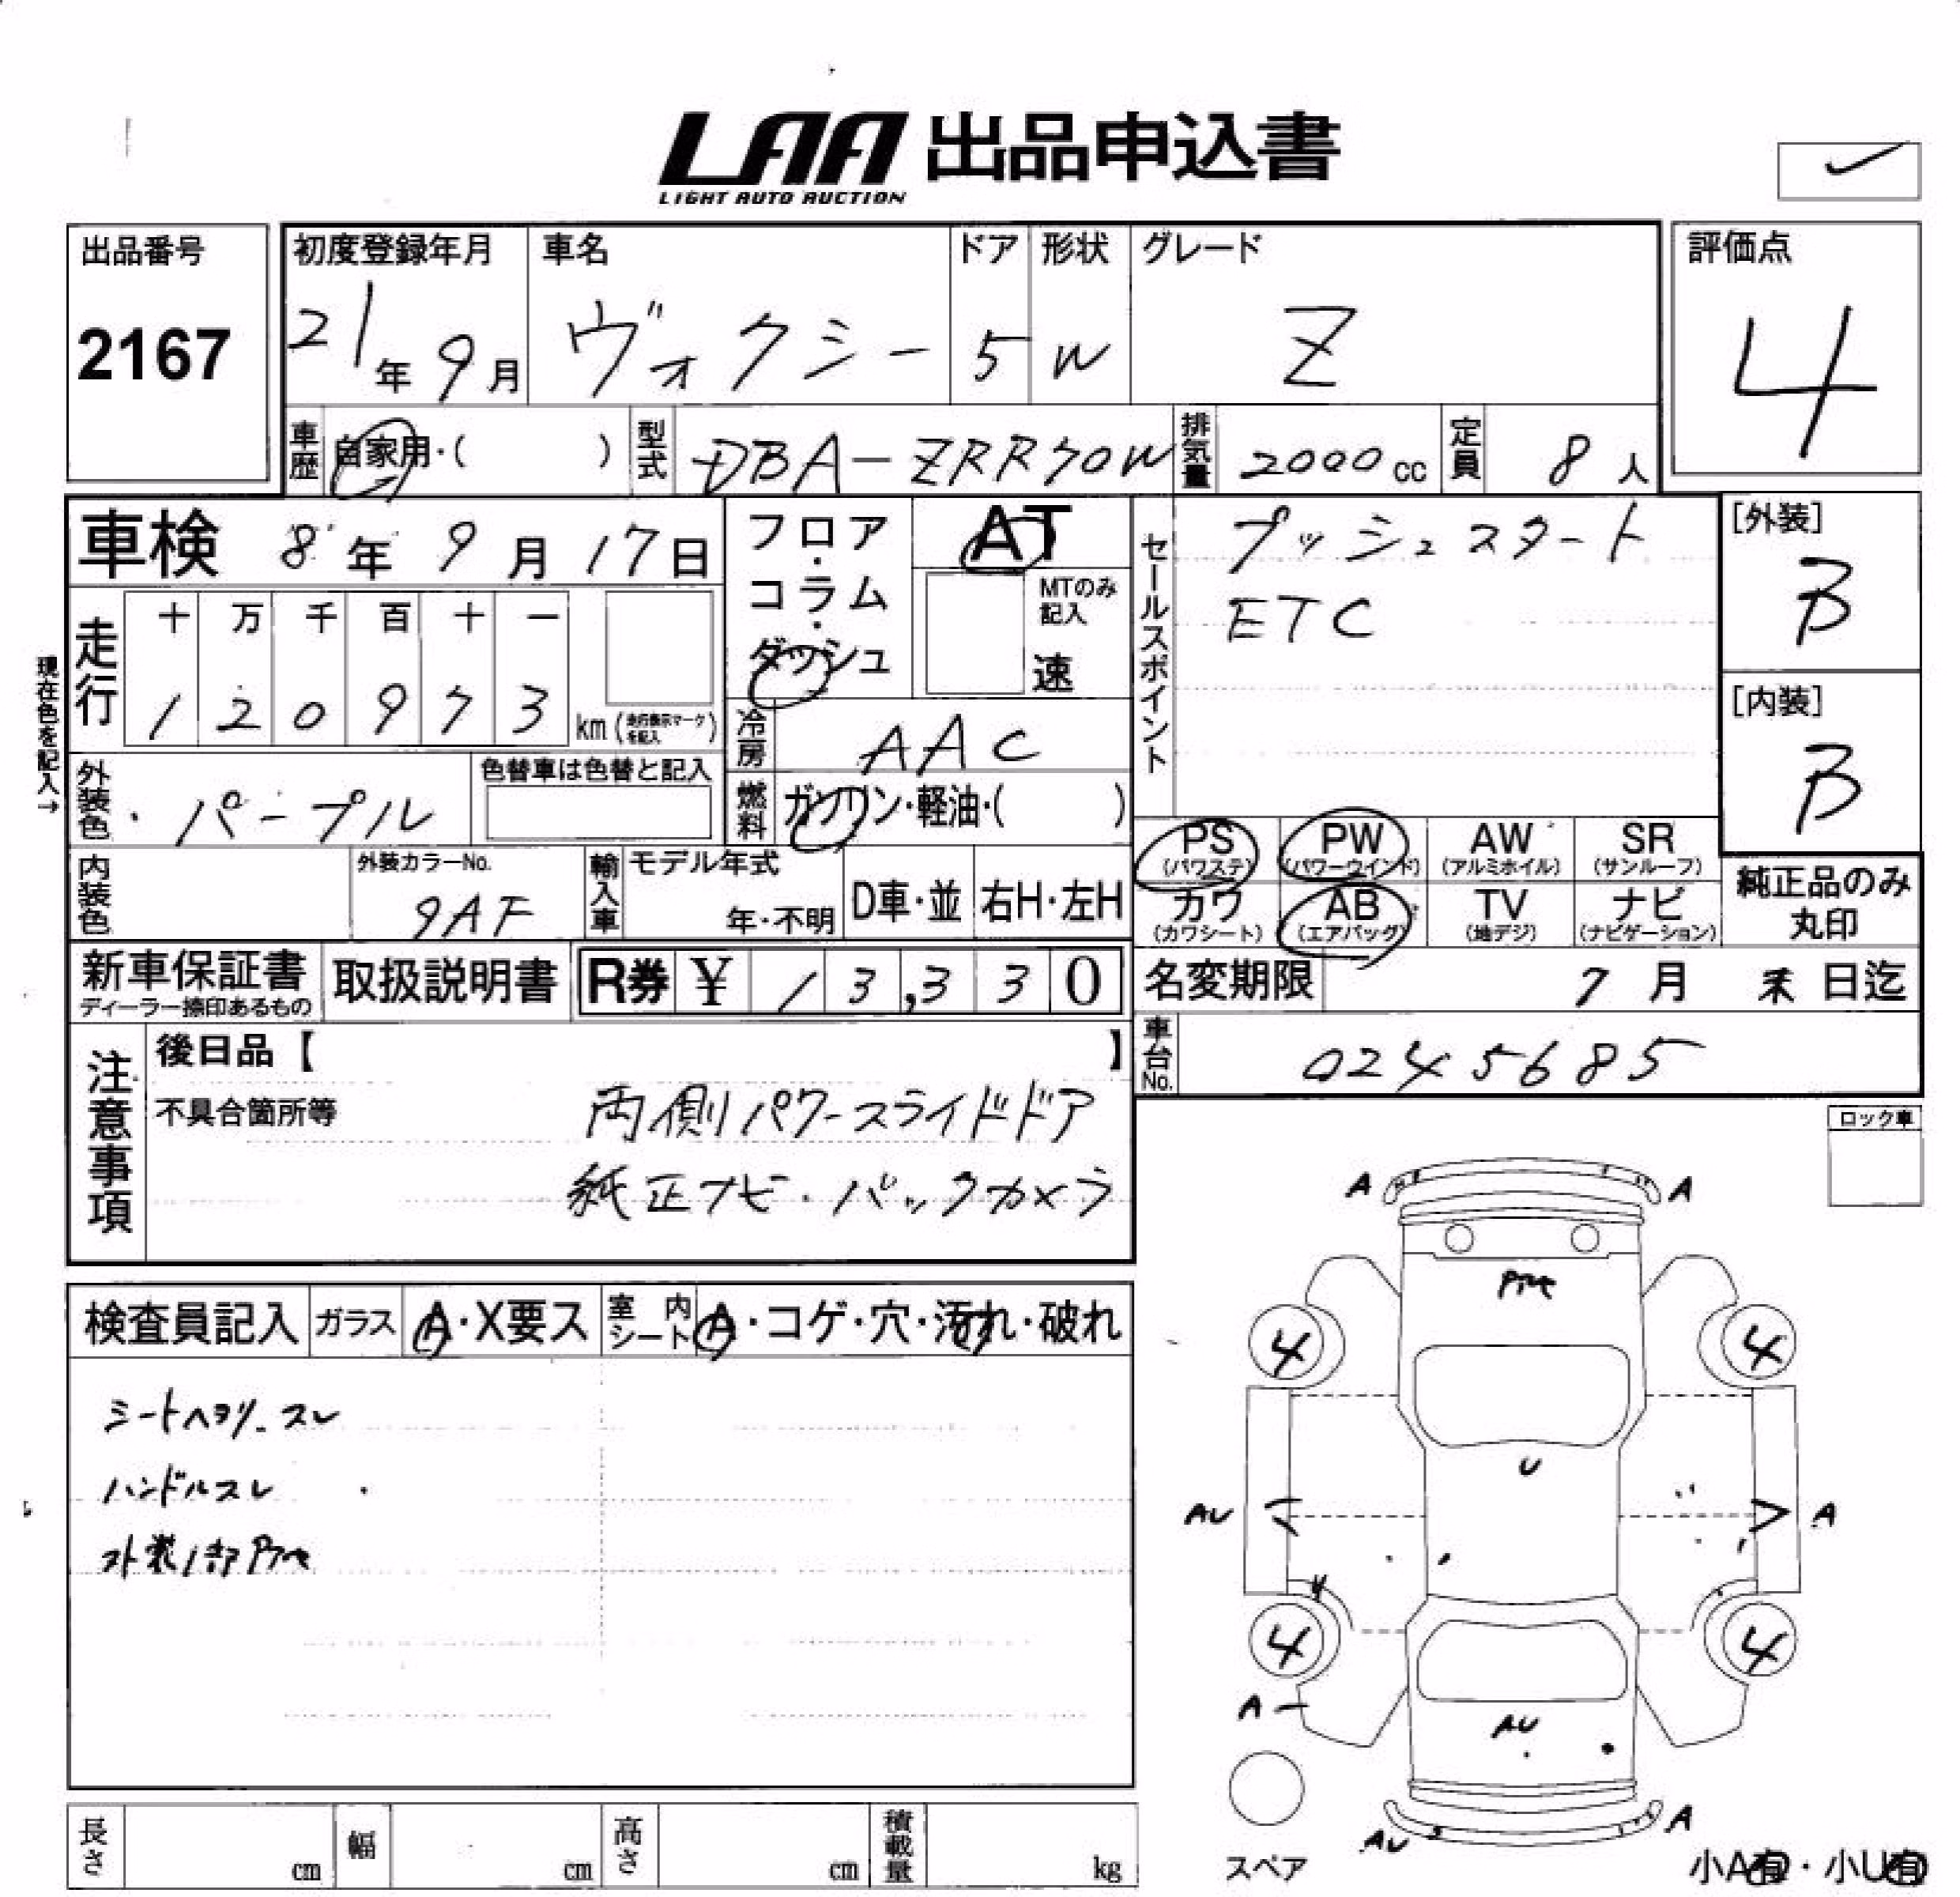 LAA 出品申込書
LIGHT AUTO AUCTION
出品番号
2167
初度登録年月
21年9月
車名
ヴォクシー
ドア
5
形状
W
グレード
Z
評価点
4
車歴 自家用・( )
型式 DBA-ZRR70W
排気量 2000cc
定員 8人
車検 8年9月17日
フロア・コラム・ダッシュ
AT
MTのみ記入
速
セールスポイント
プッシュスタート
ETC
[外装]
B
[内装]
B
現在色を記入→
走行
十 万 千 百 十 一
1 2 0 9 7 3 km (走行表示マークを記入)
冷房 AAC
外装色 パープル
色替車は色替と記入
燃料 ガソリン・軽油・( )
PS (パワステ)
PW (パワーウインド)
AW (アルミホイル)
SR (サンルーフ)
カワ (カワシート)
AB (エアバッグ)
TV (地デジ)
ナビ (ナビゲーション)
純正品のみ丸印
内装色
外装カラーNo.
9AF
輸入車 モデル年式
年・不明
D車・並
右H・左H
新車保証書
ディーラー捺印あるもの
取扱説明書
R券 ¥ 13,330
名変期限 7月末日迄
車台No. 0245685
注意事項
後日品【 】
不具合箇所等
両側パワースライドドア
純正ナビ・バックカメラ
ロック車
検査員記入
ガラス A・X要ス
室内シート A・コゲ・穴・汚れ・破れ
シートヘタリ・スレ
ハンドルスレ
外装1部
A A
4 4
U
AU A
4 4
A
AU
AU A
スペア
小A有・小U有
長さ cm
幅 cm
高さ cm
積載量 kg